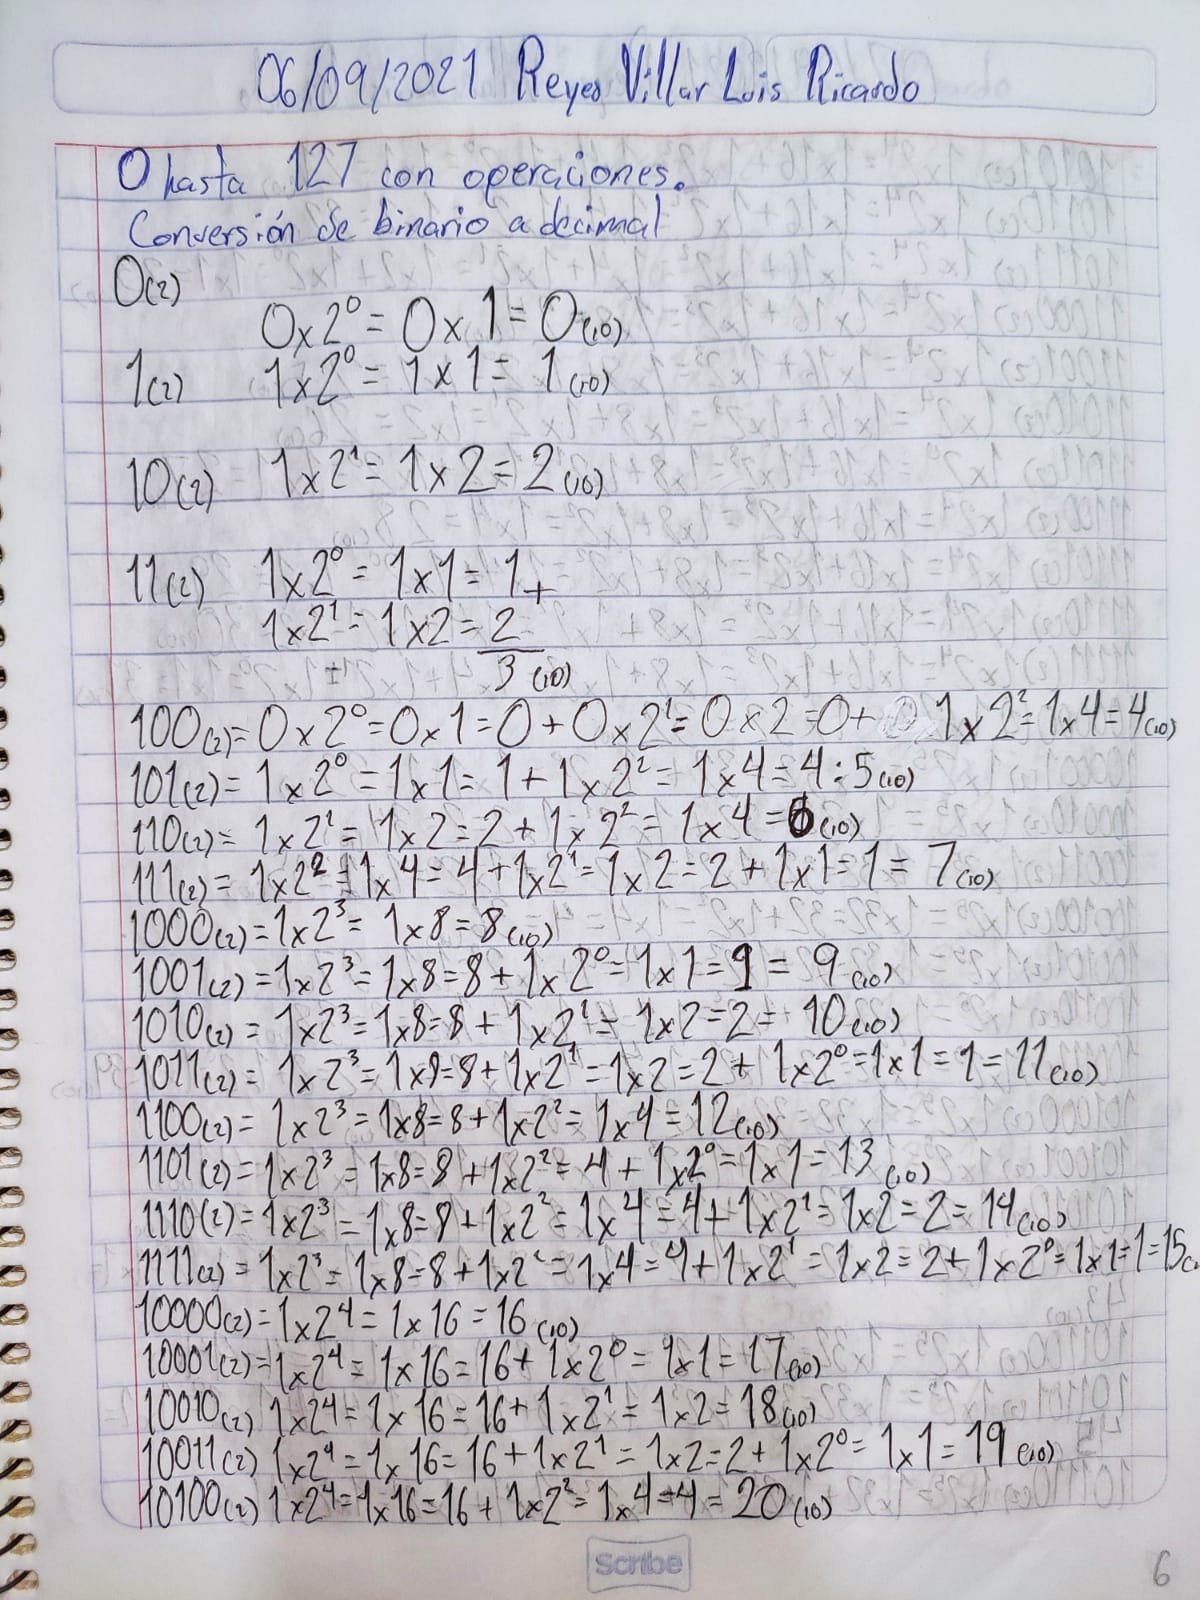 06/09/2021 Reyes Villar Luis Ricardo
0 hasta 127 con operaciones.
Conversión de binario a decimal
0(2)
0x2⁰= 0x1= 0(10)
1(2) 1x2⁰= 1x1= 1(10)
10(2) 1x2¹= 1x2=2(10)
11(2) 1x2⁰= 1x1= 1+
1x2¹= 1x2= 2
3(10)
100(2)=0x2⁰=0x1=0+0x2¹=0x2=0+ 1x2²=1x4=4(10)
101(2)= 1x2⁰=1x1= 1+1x2²= 1x4=4:5(10)
110(2)= 1x2¹= 1x2=2+1x2²= 1x4=6(10)
111(2)= 1x2²=1x4=4+1x2¹=1x2=2+1x1=1=7(10)
1000(2)=1x2³= 1x8=8(10)
1001(2)=1x2³=1x8=8+1x2⁰=1x1=1=9(10)
1010(2)= 1x2³=1x8=8+1x2¹= 1x2=2= 10(10)
1011(2)= 1x2³=1x8=8+1x2¹=1x2=2+1x2⁰=1x1=1=11(10)
1100(2)= 1x2³=1x8=8+1x2²=1x4=12(10)
1101(2)=1x2³=1x8=8+1x2²=4+1x2⁰=1x1=13(10)
1110(2)=1x2³=1x8=8+1x2²=1x4=4+1x2¹=1x2=2=14(10)
1111(2)=1x2³=1x8=8+1x2²=1x4=4+1x2¹=1x2=2+1x2⁰=1x1=1=15(
10000(2)=1x2⁴=1x16=16(10)
10001(2)=1x2⁴=1x16=16+1x2⁰=1x1=17(10)
10010(2) 1x2⁴=1x16=16+1x2¹=1x2=18(10)
10011(2) 1x2⁴=1x16=16+1x2¹=1x2=2+1x2⁰=1x1=19(10)
10100(2) 1x2⁴=1x16=16+1x2²=1x4=4=20(10)
Scribe
6